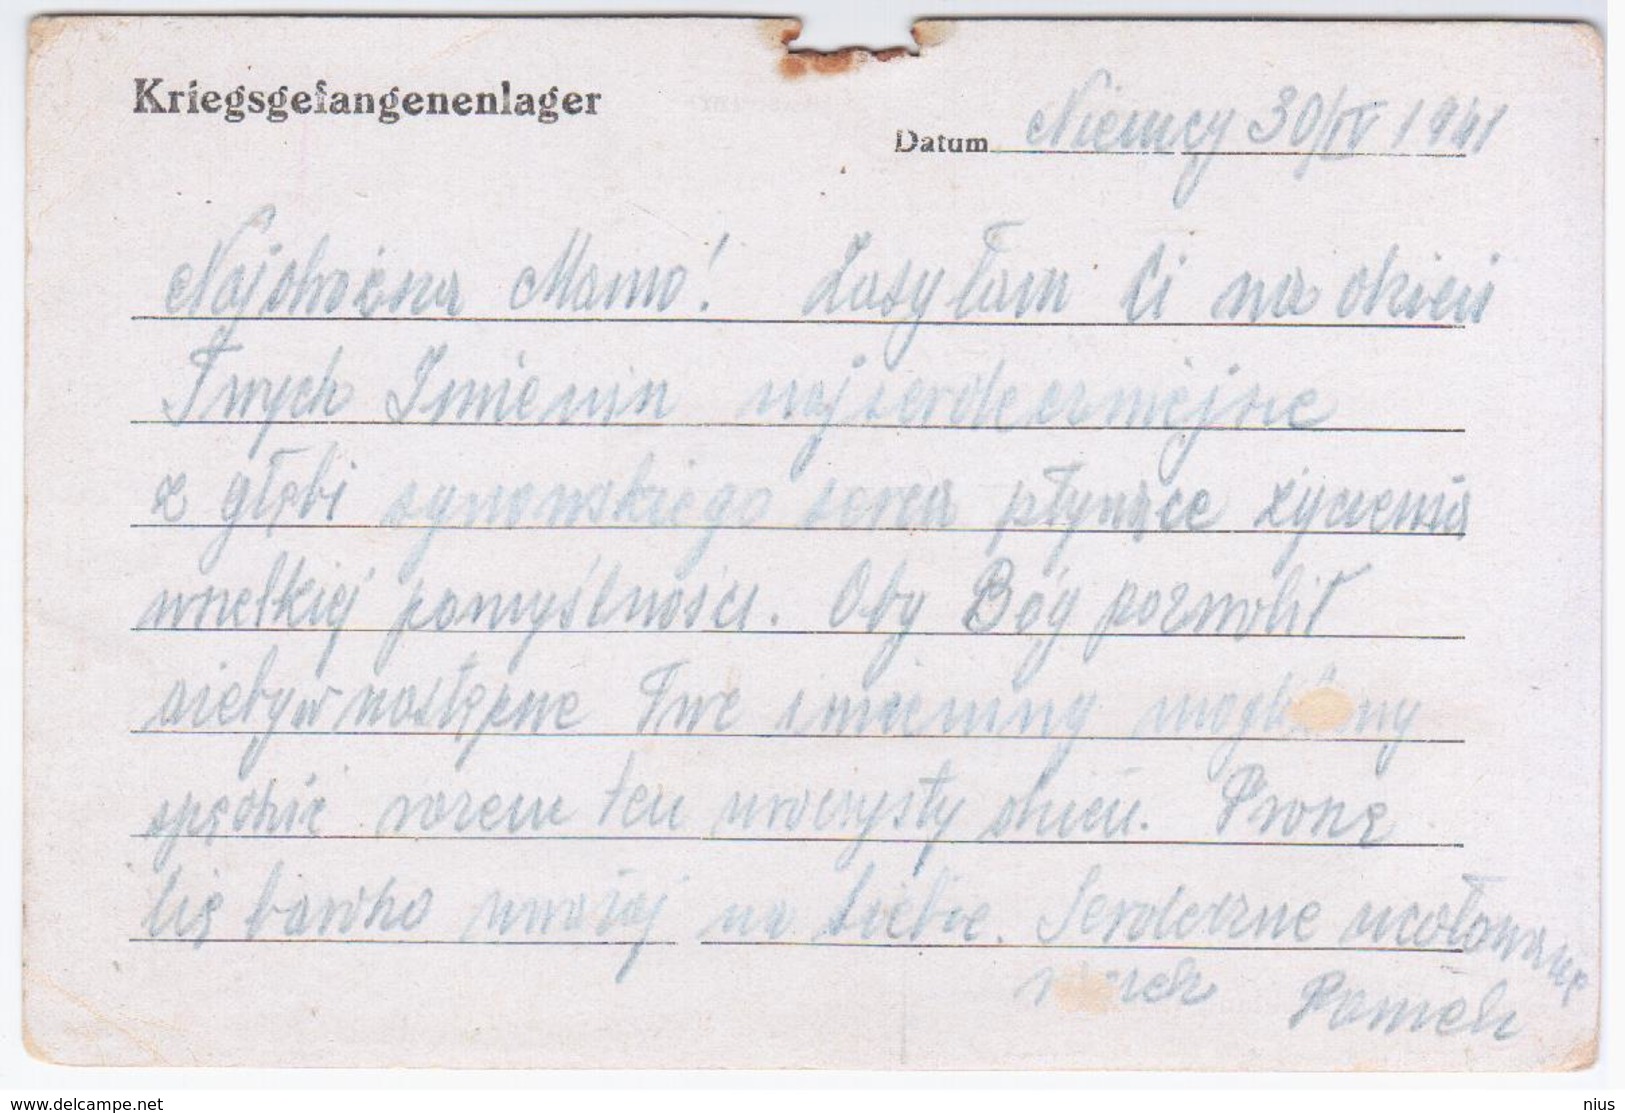 Kriegsgefangenenlager
Datum Niemcy 30/IV 1941
Najdroższa Mamo! Zasyłam Ci na dzień
Twych Imienin najserdeczniejsze
z głębi synowskiego serca płynące życzenia
wszelkiej pomyślności. Oby Bóg pozwolił
ażeby w następne Twe imieniny mogli my
spędzić razem ten uroczysty dzień. Proszę
Cię bardzo uważaj na siebie. Serdeczne ucałowanie
rączek
www.delcampe.net
nius